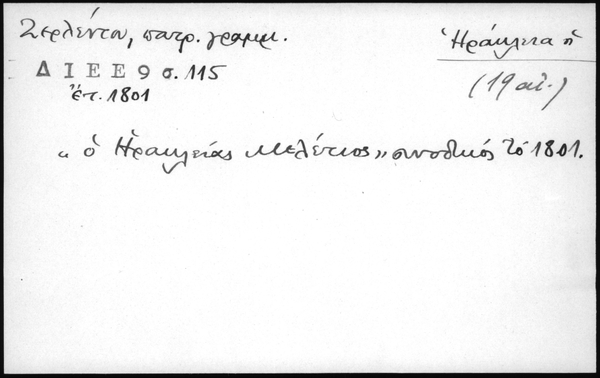 Ζερλέντου, πατρ. γραμμ.
Ἡράκλεια ἡ
ΔΙΕΕ 9 σ. 115
(19 αἰ.)
ἔτ. 1801
"ὁ Ἡρακλείας Μελέτιος" συνοδικός τό 1801.